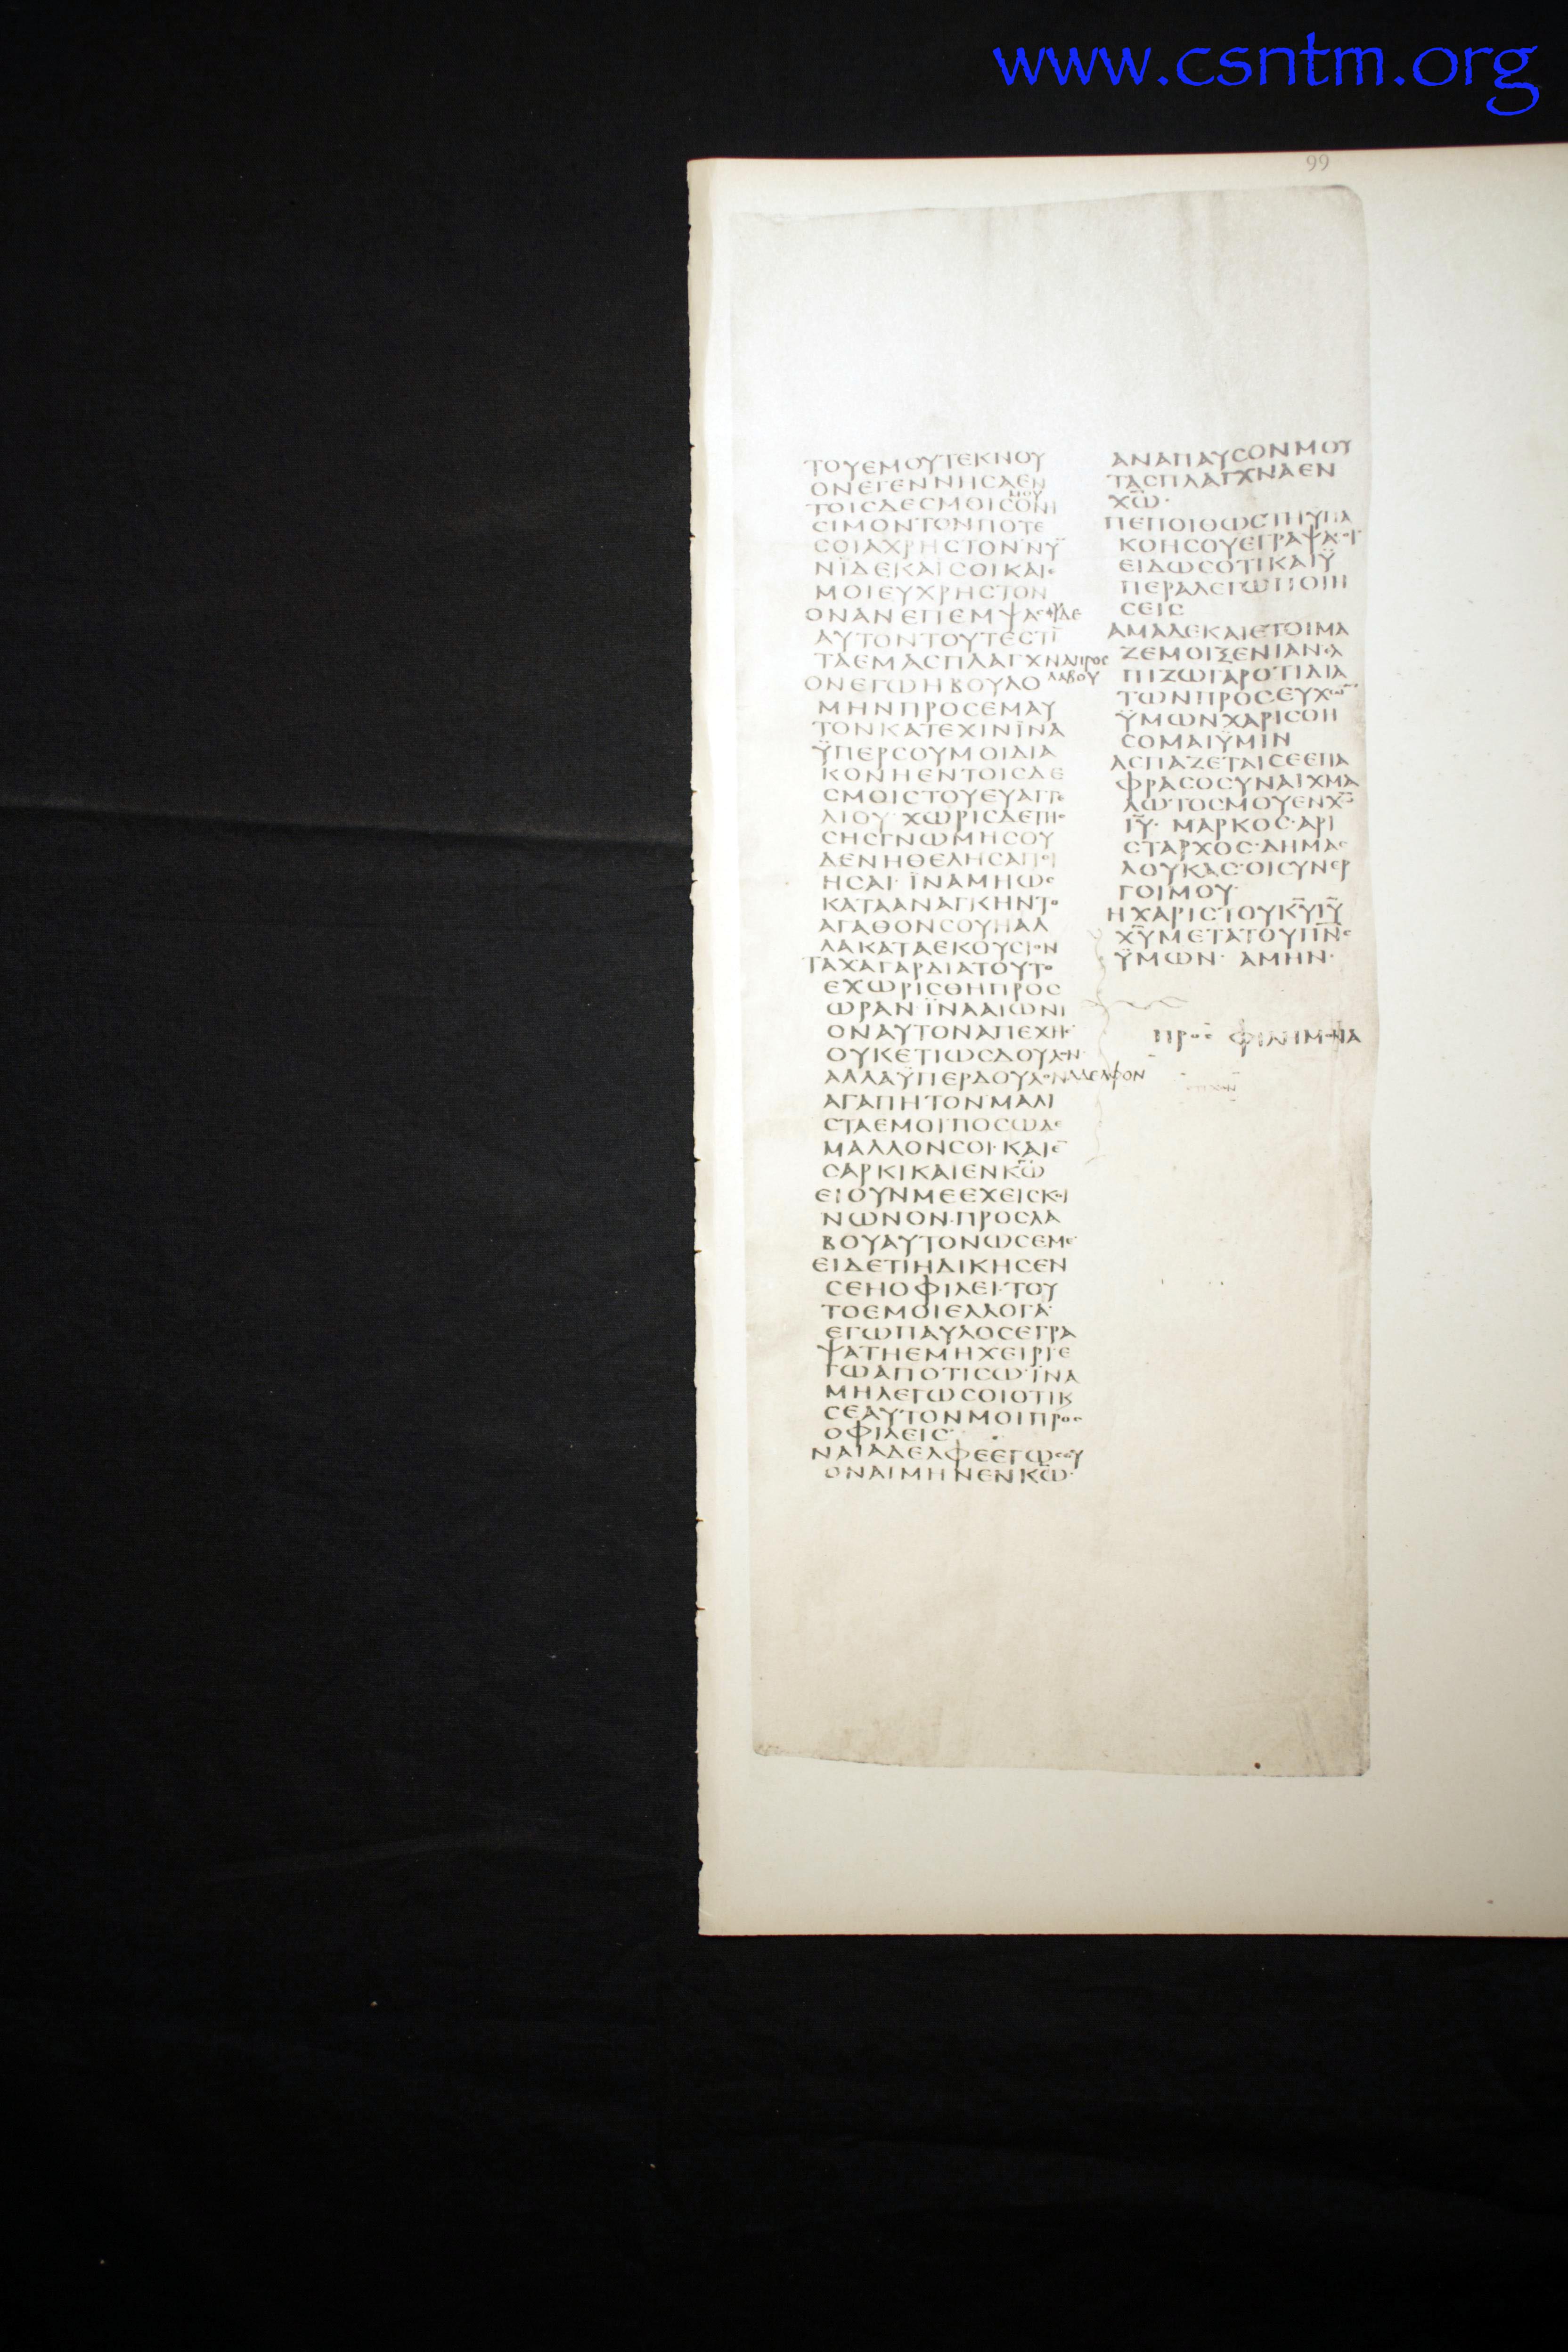 www.csntm.org
99
ΤΟΥΕΜΟΥΤΕΚΝΟΥ
ΟΝΕΓΕΝΝΗСΑΕΝ
ΜΟΥ
ΤΟΙСΔΕСΜΟΙСΟΝΗ
СΙΜΟΝΤΟΝΠΟΤΕ
СΟΙΑΧΡΗСΤΟΝ·ΝΥ
ΝΪΔΕΚΑΙСΟΙΚΑΙ
ΜΟΙΕΥΧΡΗСΤΟΝ
ΟΝΑΝΕΠΕΜΨΑ
ΑΥΤΟΝΤΟΥΤΕСΤΙ̅
ΤΑΕΜΑСΠΛΑΓΧΝΑΠΡΟС
ΛΑΒΟΥ
ΟΝΕΓΩΗΒΟΥΛΟ
ΜΗΝΠΡΟСΕΜΑΥ
ΤΟΝΚΑΤΕΧΙΝΪΝΑ
ΫΠΕΡСΟΥΜΟΙΔΙΑ
ΚΟΝΗΕΝΤΟΙСΔΕ
СΜΟΙСΤΟΥΕΥΑΓΓΕ
ΛΙΟΥ· ΧΩΡΙСΔΕΤΗС
СΗСΓΝΩΜΗСΟΥ
ΔΕΝΗΘΕΛΗСΑΠΟΙ
ΗСΑΙ· ΪΝΑΜΗΩС
ΚΑΤΑΑΝΑΓΚΗΝΤΟ
ΑΓΑΘΟΝСΟΥΗΑΛ
ΛΑΚΑΤΑΕΚΟΥСΙΟΝ
ΤΑΧΑΓΑΡΔΙΑΤΟΥΤΟ
ΕΧΩΡΙСΘΗΠΡΟС
ΩΡΑΝ·ΪΝΑΑΙΩΝΙ
ΟΝΑΥΤΟΝΑΠΕΧΗС
ΟΥΚΕΤΙΩСΔΟΥΛΟΝ
ΑΛΛΑΫΠΕΡΔΟΥΛΟΝΑΔΕΛΦΟΝ
ΑΓΑΠΗΤΟΝ·ΜΑΛΙ
СΤΑΕΜΟΙ·ΠΟСΩΔΕ
ΜΑΛΛΟΝСΟΙ·ΚΑΙΕ̅
СΑΡΚΙΚΑΙΕΝΚ̅Ω̅
ΕΙΟΥΝΜΕΕΧΕΙСΚΟΙ
ΝΩΝΟΝ·ΠΡΟСΛΑ
ΒΟΥΑΥΤΟΝΩСΕΜΕ·
ΕΙΔΕΤΙΗΔΙΚΗСΕΝ
СΕΗΟΦΙΛΕΙ·ΤΟΥ
ΤΟΕΜΟΙΕΛΛΟΓΑ·
ΕΓΩΠΑΥΛΟСΕΓΡΑ
ΨΑΤΗΕΜΗΧΕΙΡΙΕ
ΓΩΑΠΟΤΙСΩ·ΪΝΑ
ΜΗΛΕΓΩСΟΙΟΤΙΚ
СΕΑΥΤΟΝΜΟΙΠΡΟС
ΟΦΙΛΕΙС·
ΝΑΙΑΔΕΛΦΕΕΓΩСΟΥ
ΟΝΑΙΜΗΝΕΝΚ̅Ω̅·
ΑΝΑΠΑΥСΟΝΜΟΥ
ΤΑСΠΛΑΓΧΝΑΕΝ
Χ̅Ω̅·
ΠΕΠΟΙΘΩСΤΗΫΠΑ
ΚΟΗСΟΥΕΓΡΑΨΑСΟΙ
ΕΙΔΩСΟΤΙΚΑΙΫ
ΠΕΡΑΛΕΓΩΠΟΙΗ
СΕΙС
ΑΜΑΔΕΚΑΙΕΤΟΙΜΑ
ΖΕΜΟΙΞΕΝΙΑΝ·ΕΛ
ΠΙΖΩΓΑΡΟΤΙΔΙΑ
ΤΩΝΠΡΟСΕΥΧΩ̅
ΫΜΩΝΧΑΡΙСΘΗ
СΟΜΑΙΫΜΙΝ
ΑСΠΑΖΕΤΑΙСΕΕΠΑ
ΦΡΑСΟСΥΝΑΙΧΜΑ
ΛΩΤΟСΜΟΥΕΝΧ̅Ω̅
Ι̅Υ̅· ΜΑΡΚΟС·ΑΡΙ
СΤΑΡΧΟС·ΔΗΜΑС
ΛΟΥΚΑС·ΟΙСΥΝΕΡ
ΓΟΙΜΟΥ·
ΗΧΑΡΙСΤΟΥΚ̅Υ̅Ι̅Υ̅
Χ̅Υ̅ΜΕΤΑΤΟΥΠ̅Ν̅С̅
ΫΜΩΝ· ΑΜΗΝ·
ΠΡΟС ΦΙΛΗΜΟΝΑ